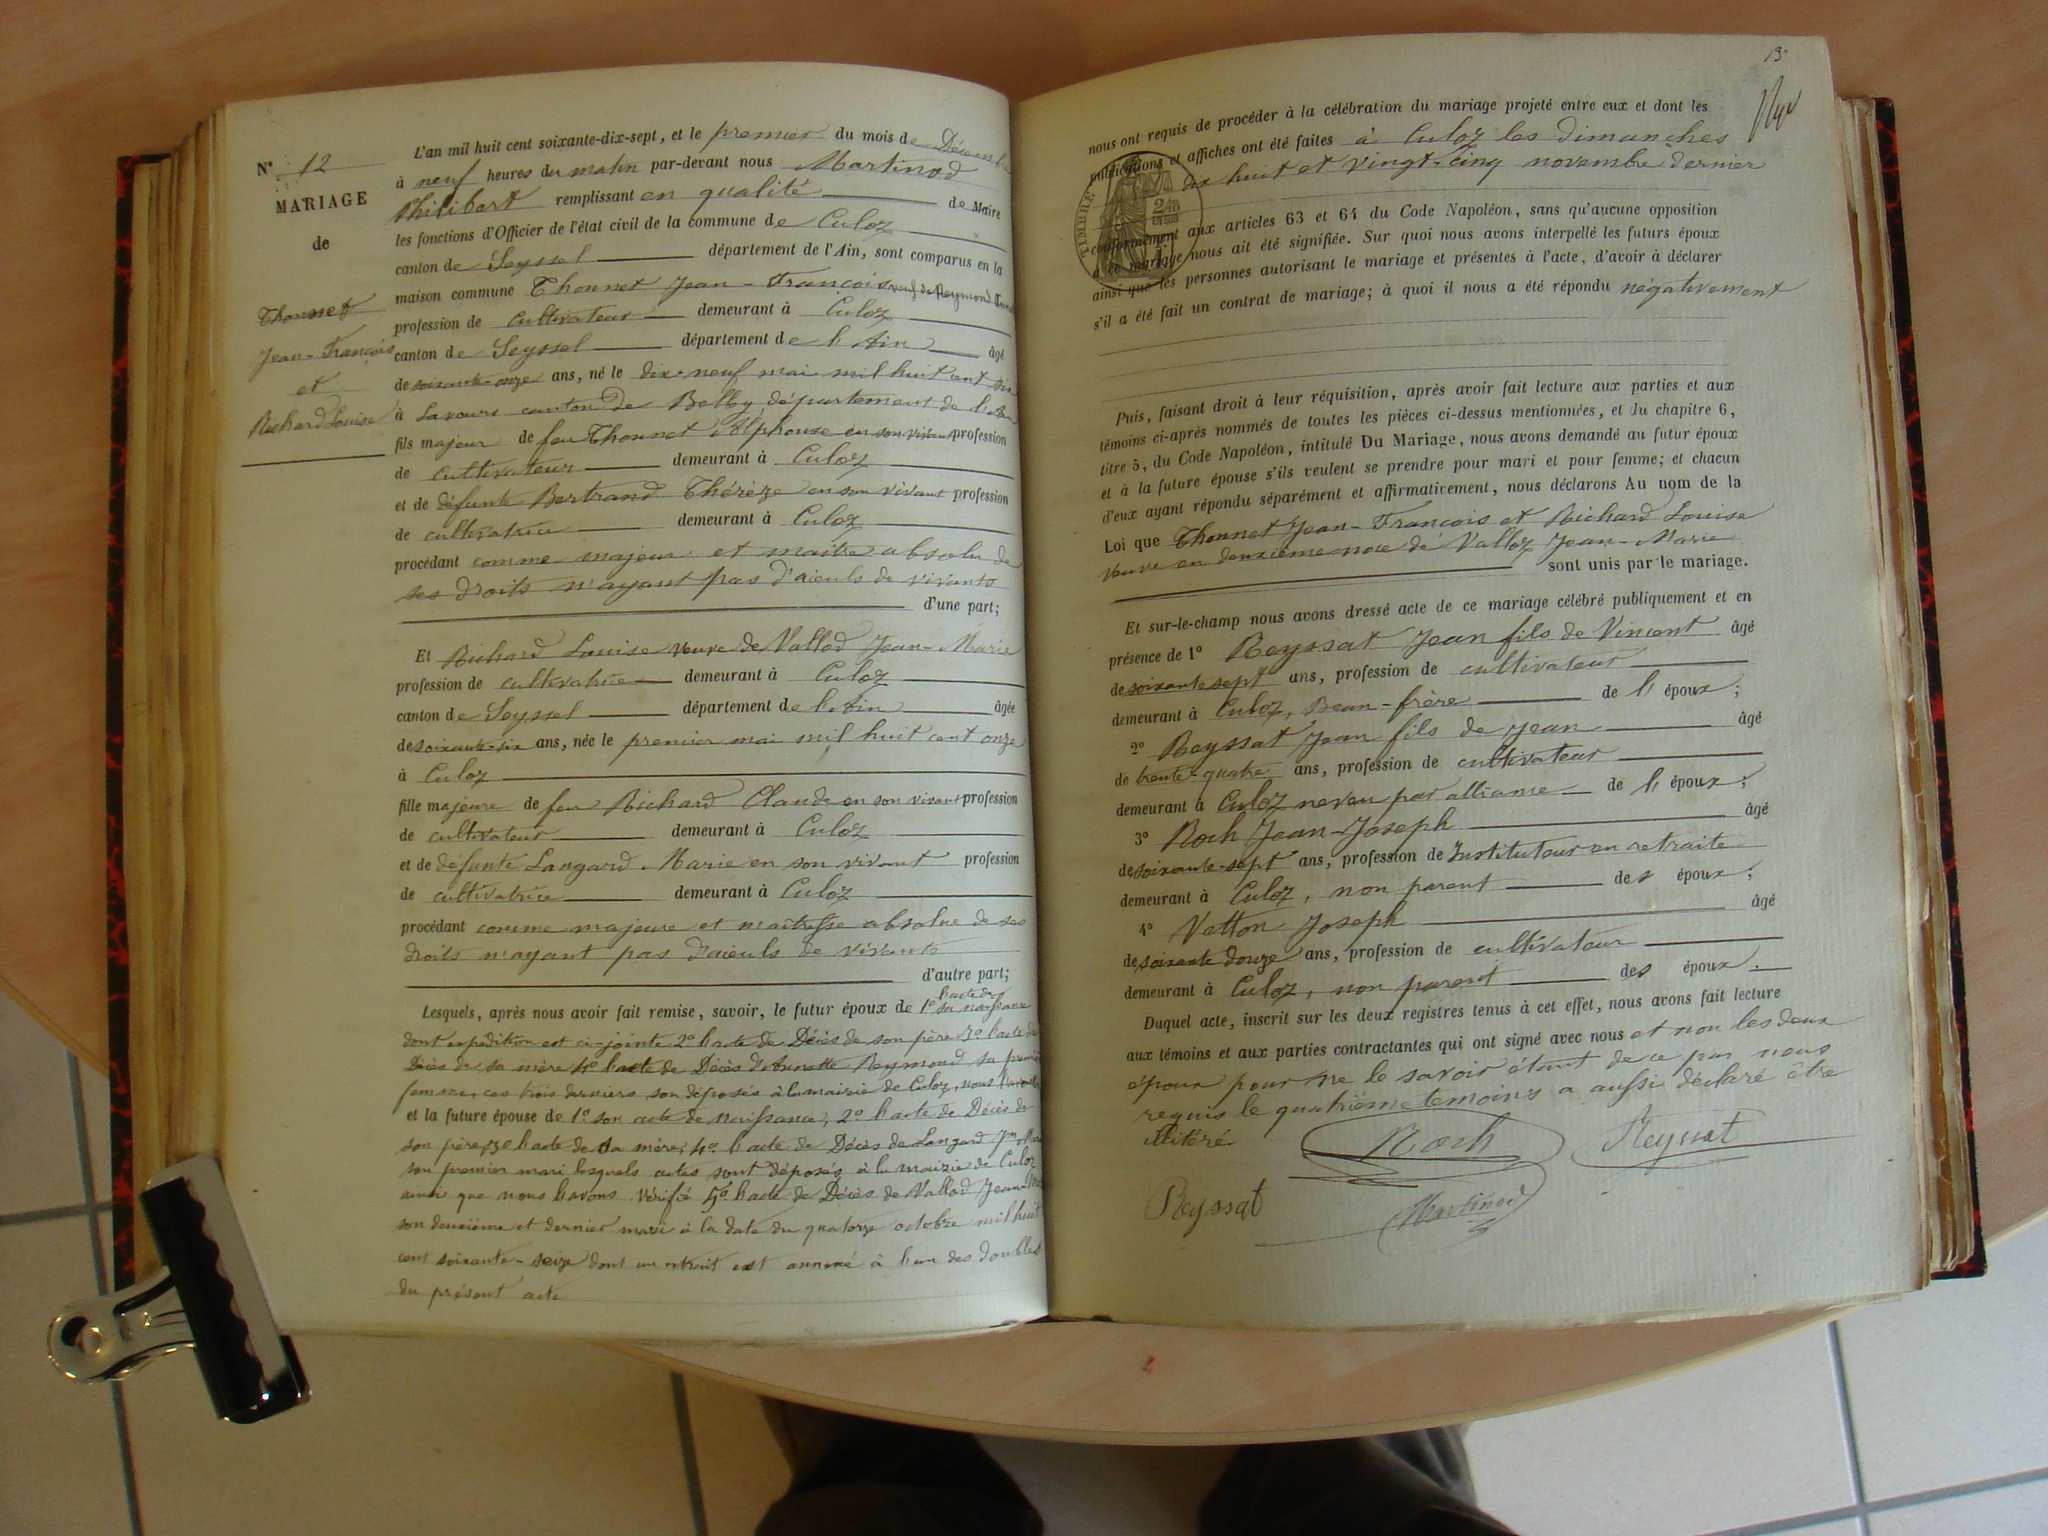 N° 12
MARIAGE
de
Thonnet
Jean-François
et
Richard Louise
L'an mil huit cent soixante-dix-sept, et le premier du mois de Décembre
à neuf heures du matin par-devant nous Martinod
Philibert remplissant en qualité de Maire
les fonctions d'Officier de l'état civil de la commune de Culoz
canton de Seyssel département de l'Ain, sont comparus en la
maison commune Thonnet Jean-François veuf de Reymond
profession de cultivateur demeurant à Culoz
canton de Seyssel département de l'Ain âgé
de soixante-onze ans, né le dix-neuf mai mil huit cent six
à Lavours canton de Belley département de l'Ain
fils majeur de feu Thonnet Alphonse en son vivant profession
de cultivateur demeurant à Culoz
et de défunte Bertrand Thérèze en son vivant profession
de cultivatrice demeurant à Culoz
procédant comme majeur et maître absolu de
ses droits n'ayant pas d'aïeuls de vivants
d'une part;
Et Richard Louise veuve de Vallod Jean-Marie
profession de cultivatrice demeurant à Culoz
canton de Seyssel département de l'Ain âgée
de soixante-six ans, née le premier mai mil huit cent onze
à Culoz
fille majeure de feu Richard Claude en son vivant profession
de cultivateur demeurant à Culoz
et de défunte Langard Marie en son vivant profession
de cultivatrice demeurant à Culoz
procédant comme majeure et maîtresse absolue de ses
droits n'ayant pas d'aïeuls de vivants
d'autre part;
Lesquels, après nous avoir fait remise, savoir, le futur époux de 1° l'acte de sa naissance
dont expédition est ci-jointe 2° l'acte de Décès de son père 3° l'acte de
Décès de sa mère 4° l'acte de Décès d'Annette Reymond sa première
femme, ces trois derniers son déposés à la mairie de Culoz, nous
et la future épouse de 1° son acte de naissance; 2° l'acte de Décès de
son père; 3° l'acte de sa mère; 4° l'acte de Décès de Langard
son premier mari lesquels actes sont déposés à la mairie de Culoz
ainsi que nous l'avons vérifié 5° l'acte de Décès de Vallod Jean-Marie
son deuxième et dernier mari à la date du quatorze octobre mil huit
cent soixante-seize dont un extrait est annexé à l'un des doubles
du présent acte
13
nous ont requis de procéder à la célébration du mariage projeté entre eux et dont les
publications et affiches ont été faites à Culoz les dimanches
dix huit et vingt-cinq novembre dernier
TIMBRE
conformément aux articles 63 et 64 du Code Napoléon, sans qu'aucune opposition
à ce mariage nous ait été signifiée. Sur quoi nous avons interpellé les futurs époux
ainsi que les personnes autorisant le mariage et présentes à l'acte, d'avoir à déclarer
s'il a été fait un contrat de mariage; à quoi il nous a été répondu négativement
Puis, faisant droit à leur réquisition, après avoir fait lecture aux parties et aux
témoins ci-après nommés de toutes les pièces ci-dessus mentionnées, et du chapitre 6,
titre 5, du Code Napoléon, intitulé Du Mariage, nous avons demandé au futur époux
et à la future épouse s'ils veulent se prendre pour mari et pour femme; et chacun
d'eux ayant répondu séparément et affirmativement, nous déclarons Au nom de la
Loi que Thonnet Jean-François et Richard Louise
veuve en deuxième noce de Valloz Jean-Marie
sont unis par le mariage.
Et sur-le-champ nous avons dressé acte de ce mariage célébré publiquement et en
présence de 1° Reyssat Jean fils de Vincent âgé
de soixante sept ans, profession de cultivateur
demeurant à Culoz, Beau-frère de l'époux;
2° Reyssat Jean fils de Jean âgé
de trente-quatre ans, profession de cultivateur
demeurant à Culoz neveu par alliance de l'époux;
3° Roch Jean-Joseph âgé
de soixante-sept ans, profession de Instituteur en retraite
demeurant à Culoz, non parent des époux;
4° Vetton Joseph âgé
de soixante douze ans, profession de cultivateur
demeurant à Culoz, non parent des époux.
Duquel acte, inscrit sur les deux registres tenus à cet effet, nous avons fait lecture
aux témoins et aux parties contractantes qui ont signé avec nous et non les deux
époux pour ne le savoir étant de ce par nous
requis le quatrième temoins a aussi déclaré être
illitéré
Roch Reyssat
Reyssat Martinod